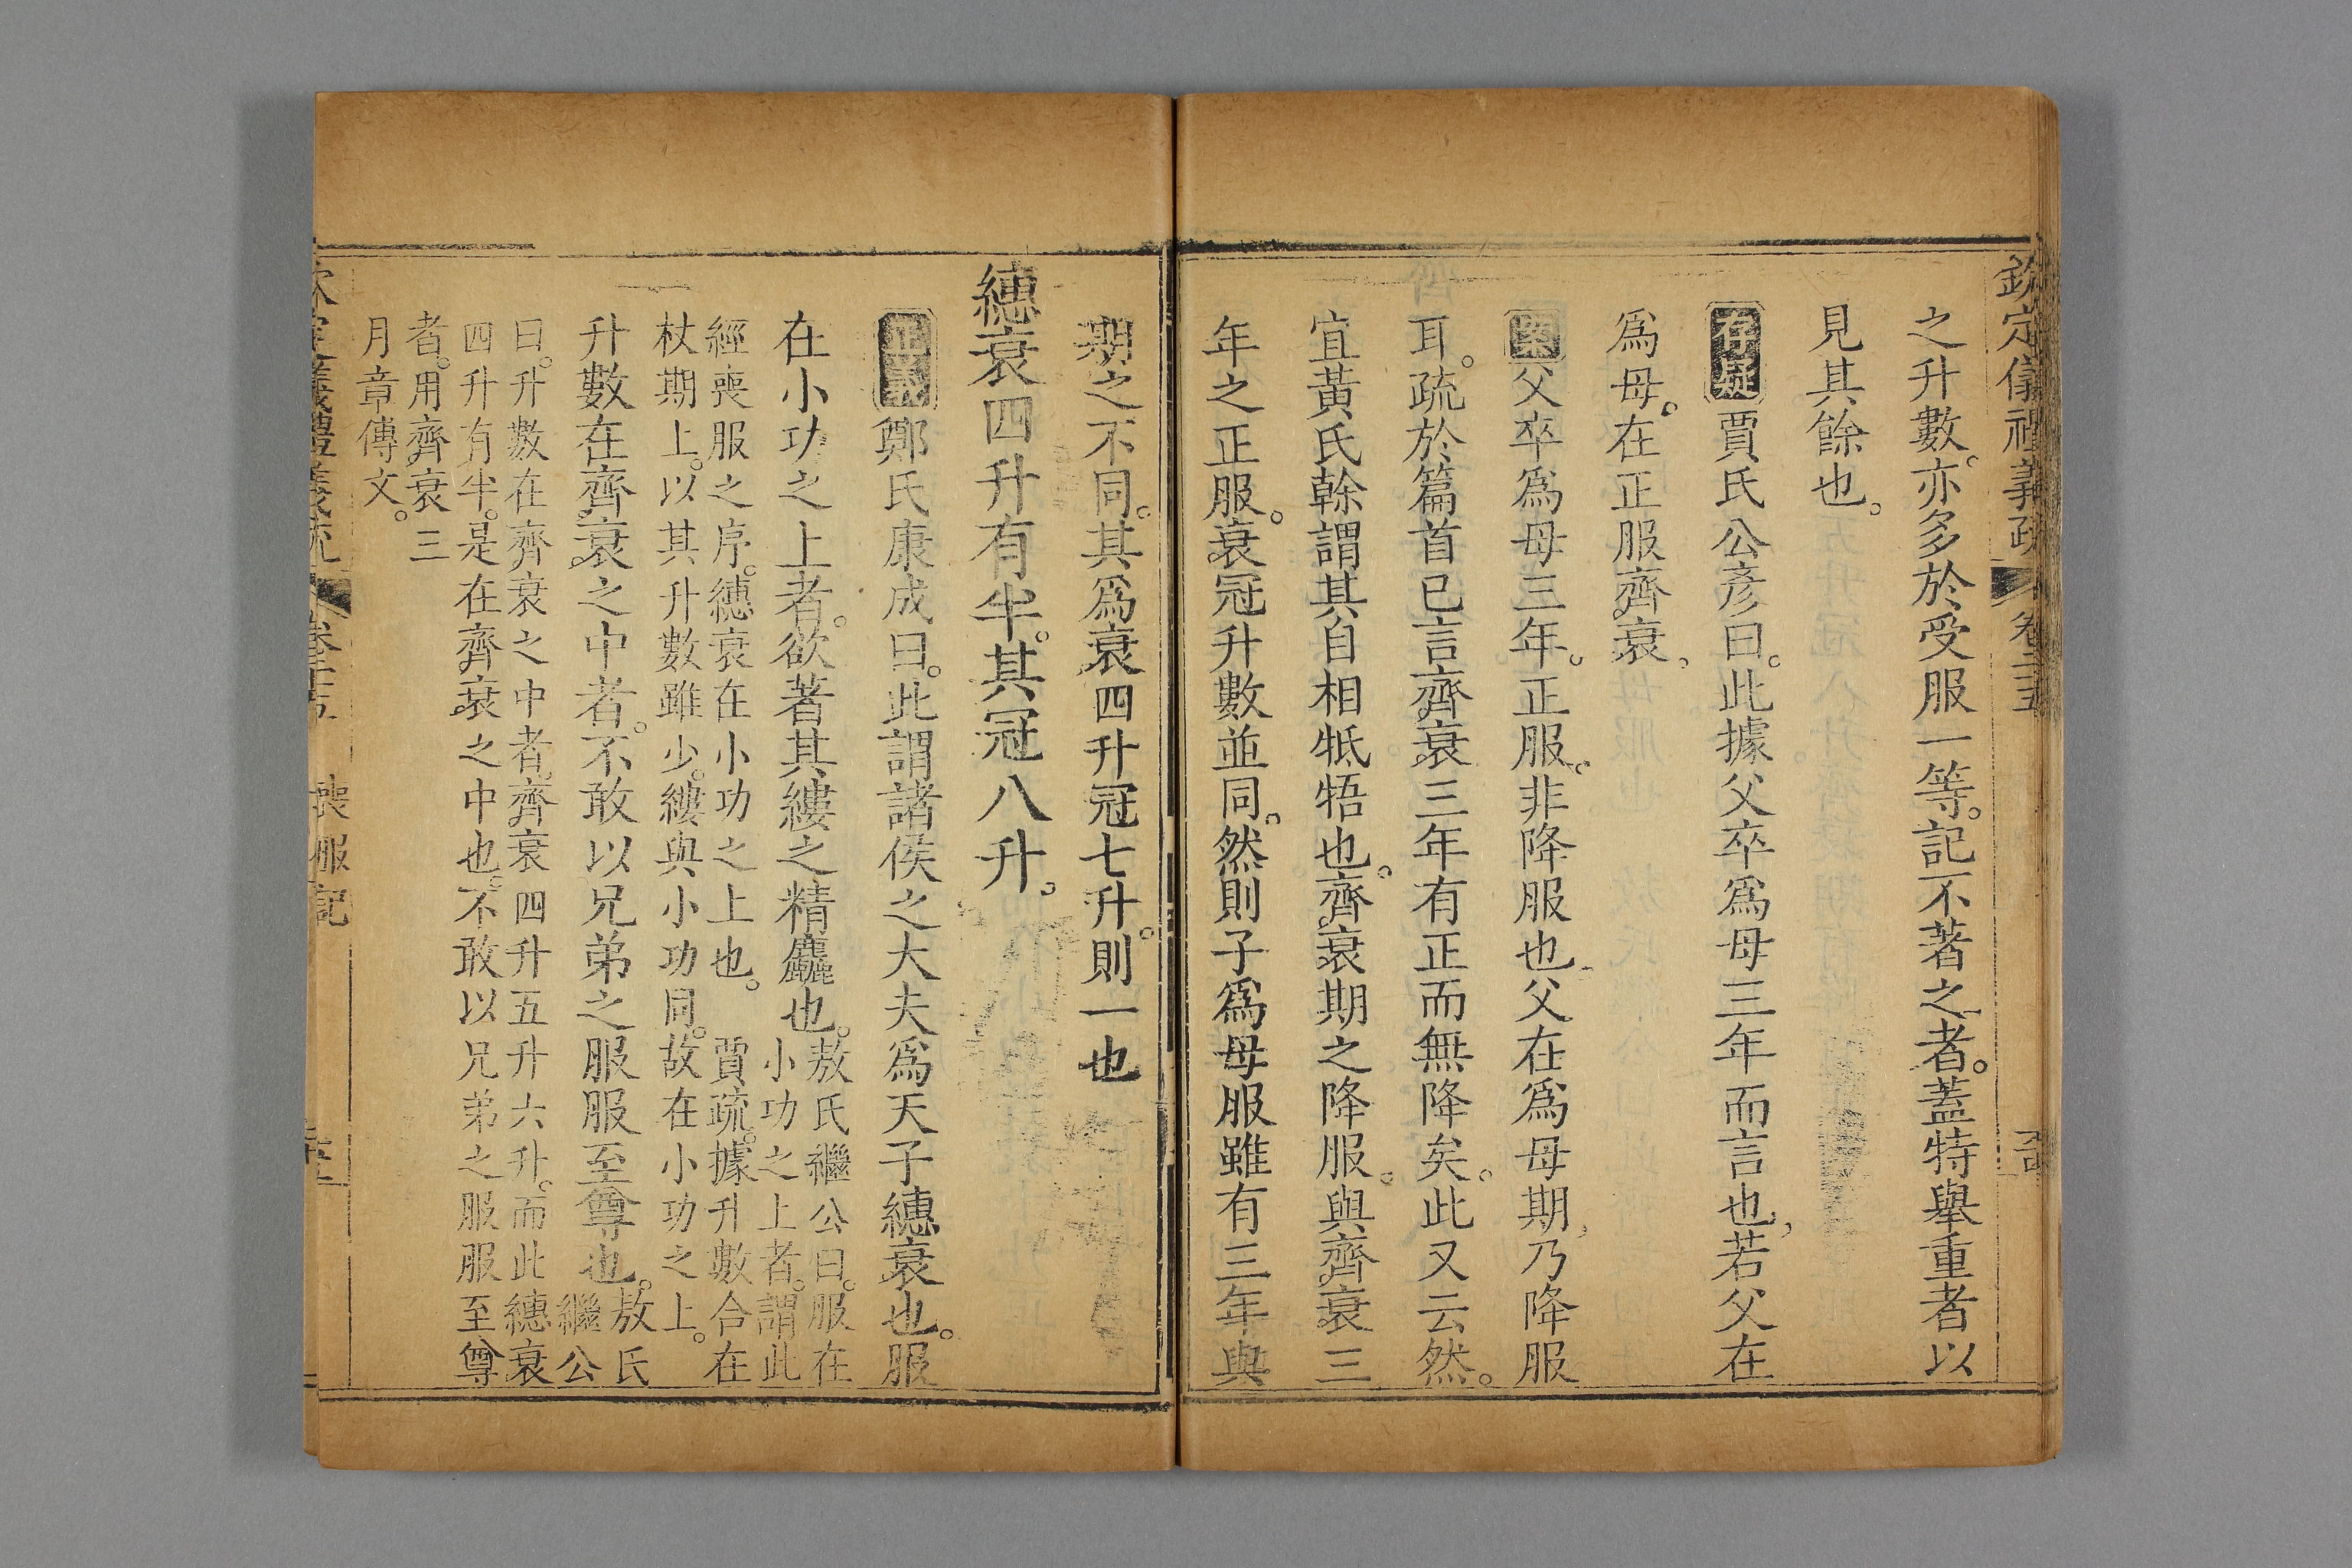 欽定儀禮義疏 卷二十五
之升數。亦多於受服一等。記不著之者。蓋特舉重者以
見其餘也。
存疑 賈氏公彥曰。此據父卒爲母三年而言也。若父在
爲母。在正服齊衰。
案 父卒爲母三年。正服。非降服也。父在爲母期。乃降服
耳。疏於篇首已言齊衰三年有正而無降矣。此又云然。
宜黃氏榦謂其自相牴牾也。齊衰期之降服。與齊衰三
年之正服。衰冠升數並同。然則子爲母服雖有三年與
期之不同。其爲衰四升冠七升。則一也
繐衰四升有半。其冠八升。
正義 鄭氏康成曰。此謂諸侯之大夫爲天子繐衰也。服
在小功之上者。欲著其縷之精麤也。敖氏繼公曰。服在
小功之上者。謂此
經喪服之序。繐衰在小功之上也。 賈疏。據升數合在
杖期上。以其升數雖少。縷與小功同。故在小功之上。
升數在齊衰之中者。不敢以兄弟之服服至尊也。敖氏
繼公
曰。升數在齊衰之中者。齊衰四升五升六升。而此繐衰
四升有半。是在齊衰之中也。不敢以兄弟之服服至尊
者。用齊衰三
月章傳文。
欽定儀禮義疏 卷二十五 喪服記